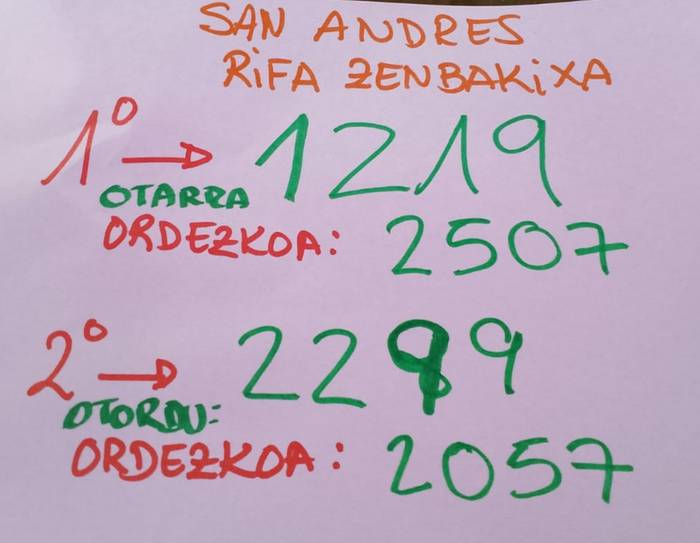 SAN ANDRES
RIFA ZENBAKIXA
1º → 1219
OTARRA
ORDEZKOA: 2507
2º → 2299
OTORDU:
ORDEZKOA: 2057